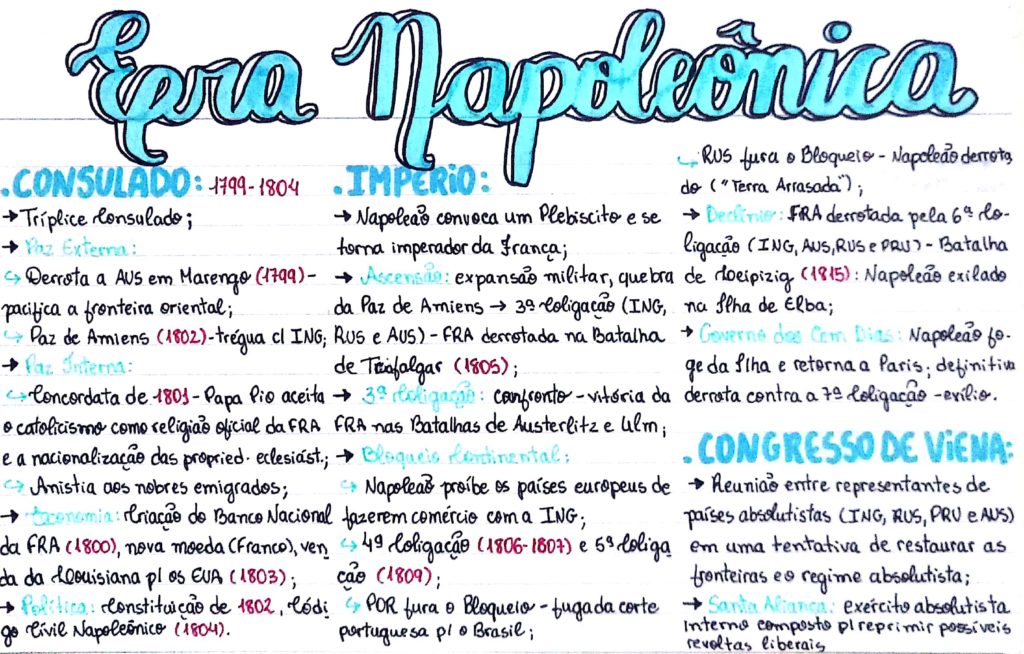 Era Napoleônica
. CONSULADO: 1799-1804
→ Tríplice Consulado;
→ Paz Externa:
↪ Derrota a AUS em Marengo (1799) -
pacifica a fronteira oriental;
↪ Paz de Amiens (1802) - trégua c/ ING;
→ Paz Interna:
↪ Concordata de 1801 - Papa Pio aceita
o catolicismo como religião oficial da FRA
e a nacionalização das propried. eclesiást.;
↪ Anistia aos nobres emigrados;
→ Economia: Criação do Banco Nacional
da FRA (1800), nova moeda (Franco), ven
da da Louisiana p/ os EUA (1803);
→ Política: Constituição de 1802, Códi
go Civil Napoleônico (1804).
. IMPÉRIO:
→ Napoleão convoca um Plebiscito e se
torna imperador da França;
→ Ascensão: expansão militar, quebra
da Paz de Amiens → 3ª Coligação (ING,
RUS e AUS) - FRA derrotada na Batalha
de Trafalgar (1805);
→ 3ª Coligação: confronto - vitória da
FRA nas Batalhas de Austerlitz e Ulm;
→ Bloqueio Continental:
↪ Napoleão proíbe os países europeus de
fazerem comércio com a ING;
↪ 4ª Coligação (1806-1807) e 5ª Coliga
ção (1809);
↪ POR fura o Bloqueio - fuga da corte
portuguesa p/ o Brasil;
↪ RUS fura o Bloqueio - Napoleão derrota
do ("Terra Arrasada");
→ Declínio: FRA derrotada pela 6ª Co-
ligação (ING, AUS, RUS e PRU) - Batalha
de Loeipizig (1815): Napoleão exilado
na Ilha de Elba;
→ Governo dos Cem Dias: Napoleão fo-
ge da Ilha e retorna a Paris; definitiva
derrota contra a 7ª Coligação - exílio.
. CONGRESSO DE VIENA:
→ Reunião entre representantes de
países absolutistas (ING, RUS, PRU e AUS)
em uma tentativa de restaurar as
fronteiras e o regime absolutista;
→ Santa Aliança: exército absolutista
interno composto p/ reprimir possíveis
revoltas liberais